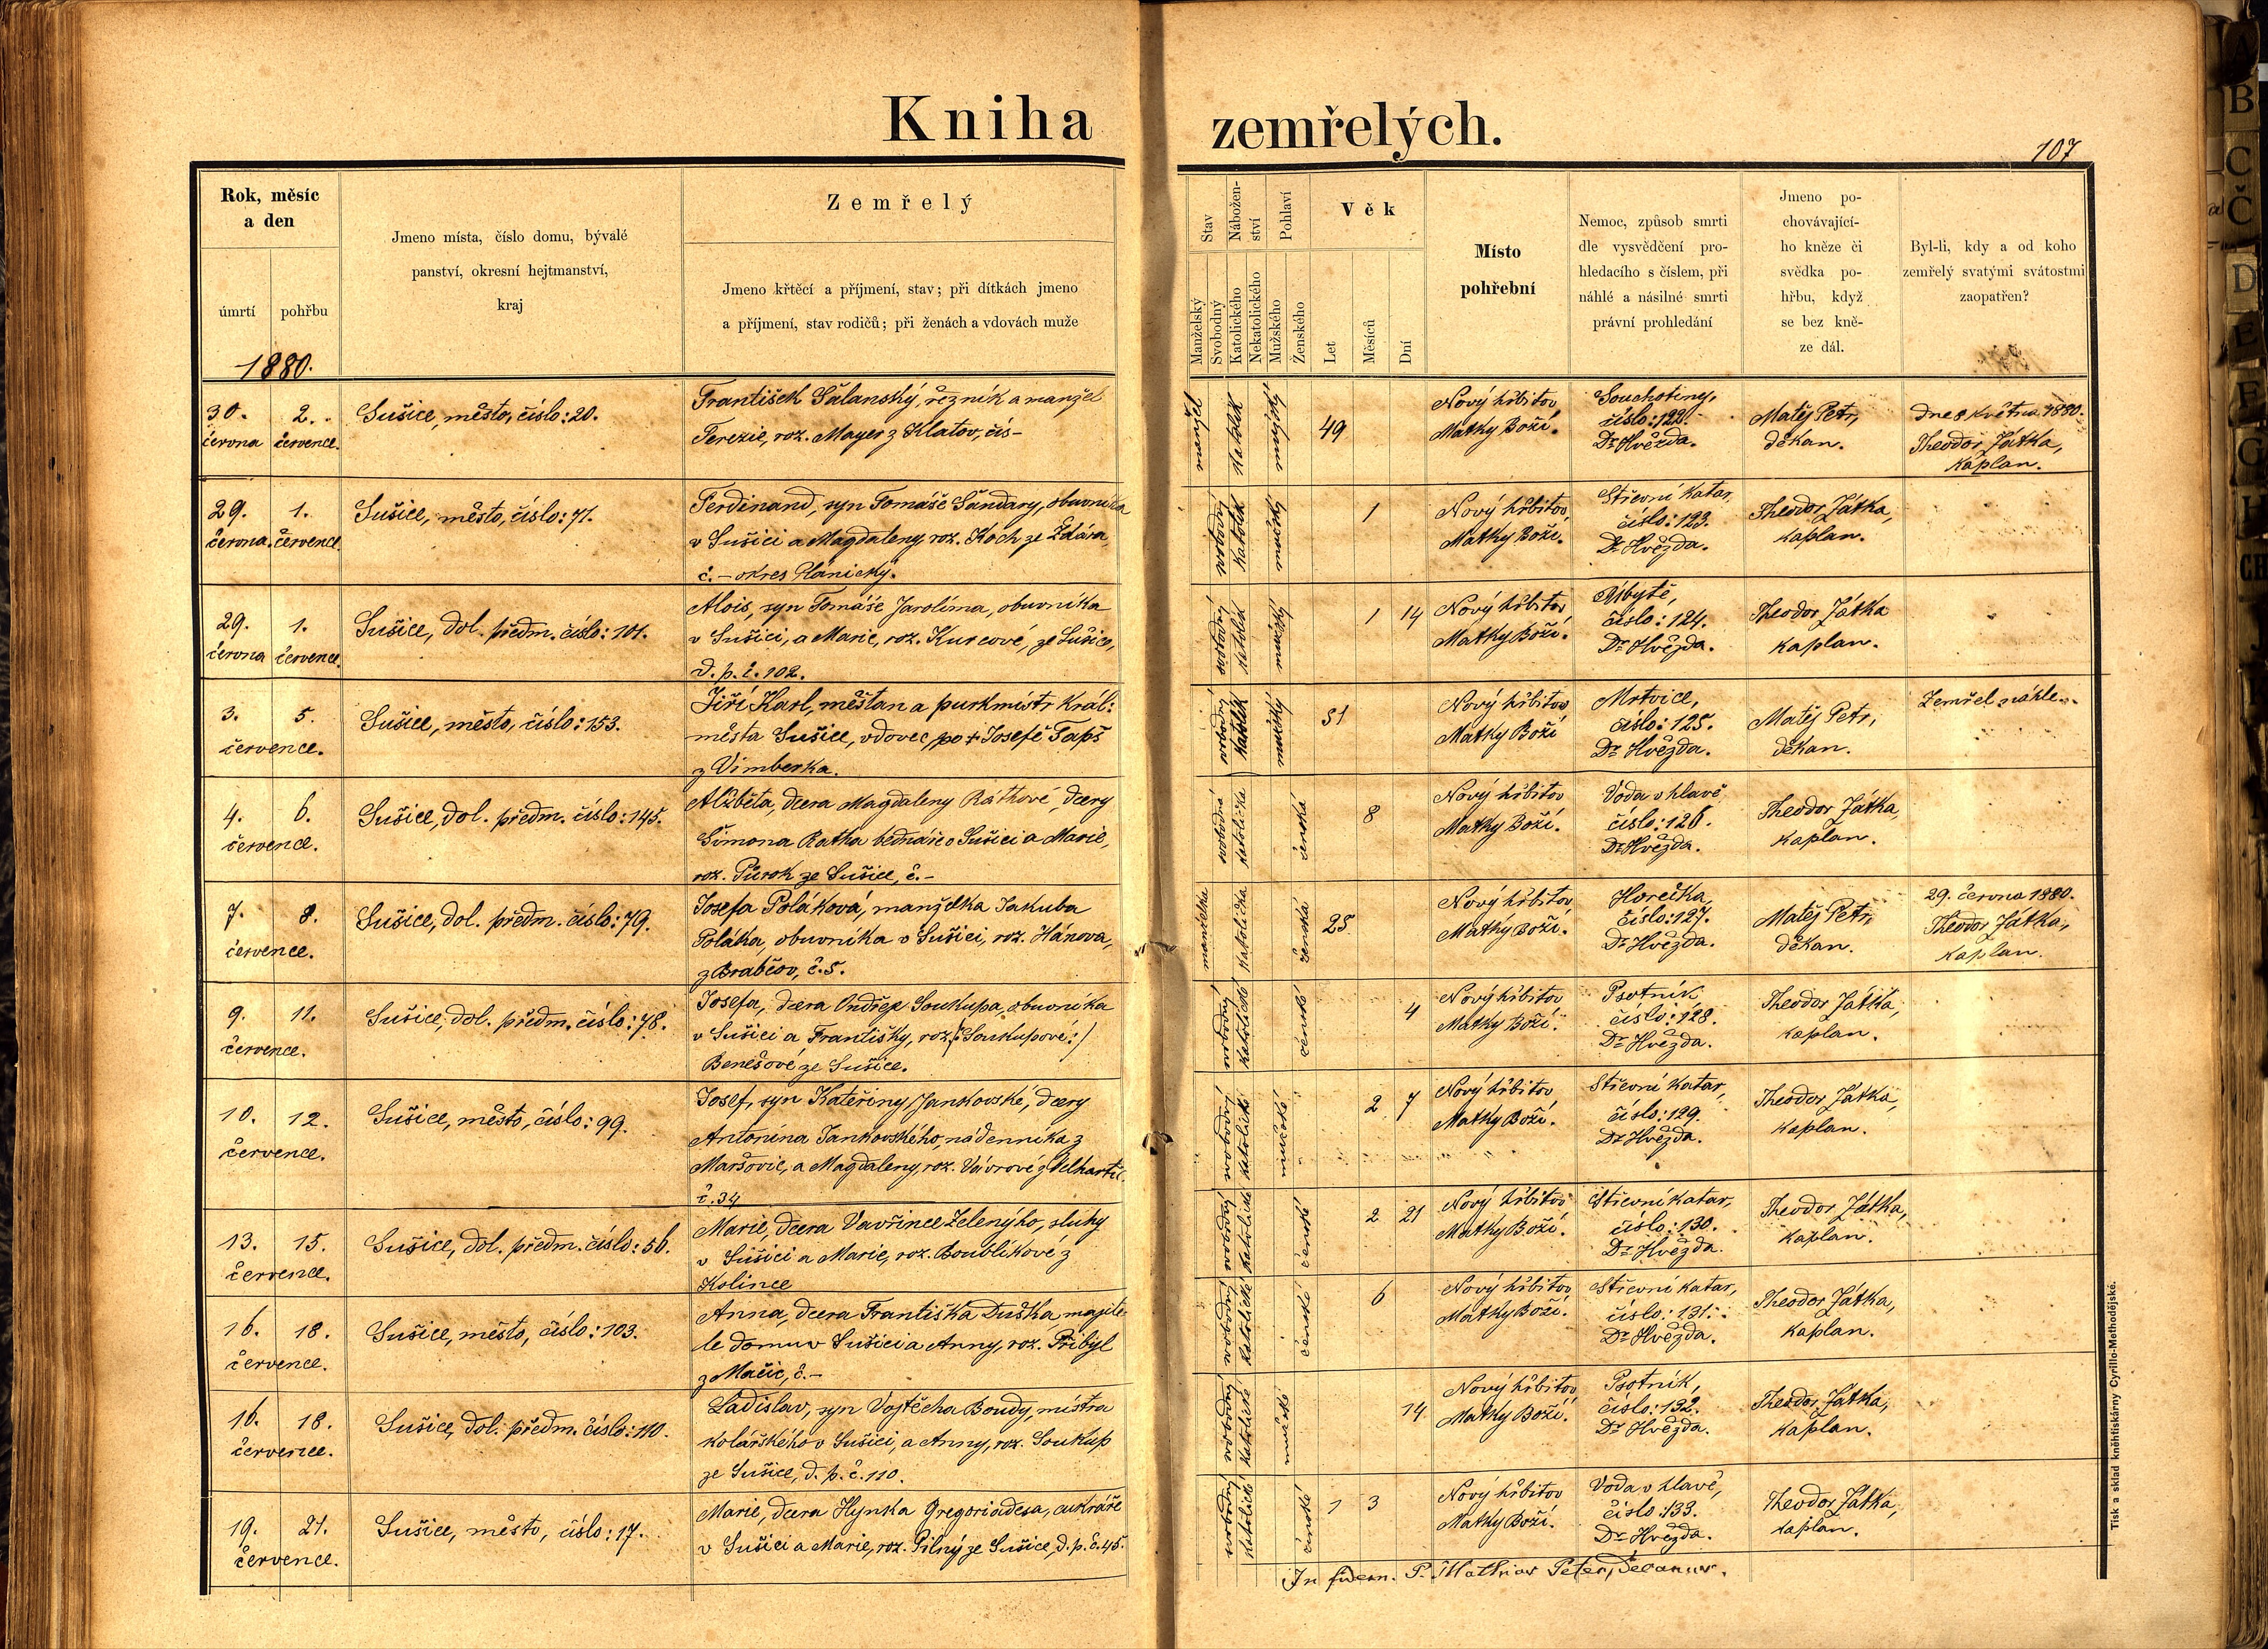 Kniha zemřelých.
107
Rok, měsíc
a den
úmrtí
pohřbu
1880.
Jmeno místa, číslo domu, bývalé
panství, okresní hejtmanství,
kraj
Zemřelý
Jmeno křtěcí a příjmení, stav; při dítkách jmeno
a příjmení, stav rodičů; při ženách a vdovách muže
Stav
Manželský
Svobodný
Nábožen-
ství
Katolického
Nekatolického
Pohlaví
Mužského
Ženského
Věk
Let
Měsíců
Dní
Místo
pohřební
Nemoc, způsob smrti
dle vysvědčení pro-
hledacího s číslem, při
náhlé a násilné smrti
právní prohledání
Jmeno po-
chovávající-
ho kněze či
svědka po-
hřbu, když
se bez kně-
ze dál.
Byl-li, kdy a od koho
zemřelý svatými svátostmi
zaopatřen?
30. června
2. července.
Sušice, město, číslo: 20.
František Šalanský, řezník a manžel
Terezie, roz. Mayer z Klatov, čís-
manžel
katolík
mužský
49
Nový hřbitov
Matky Boží.
Souchotiny,
číslo: 122.
Dr Hvězda.
Matěj Petr,
děkan.
dne 8 května 1880.
Theodor Játka,
kaplan.
29. června.
1. července.
Sušice, město, číslo: 71.
Ferdinand, syn Tomáše Šandary, obuvníka
v Sušici a Magdaleny roz. Koch ze Ždára,
č. - okres Plánický.
svobodný
katolík
mužský
1
Nový hřbitov
Matky Boží.
Střevní katar,
číslo: 123.
Dr Hvězda.
Theodor Játka,
kaplan.
29. června
1. července.
Sušice, dol. předm. číslo: 101.
Alois, syn Tomáše Jarolíma, obuvníka
v Sušici, a Marie, roz. Kurcové, ze Sušice,
d. p. č. 102.
svobodný
katolík
mužský
1
14
Nový hřbitov
Matky Boží.
Úbytě,
číslo: 124.
Dr Hvězda.
Theodor Játka
kaplan.
3. 5.
července.
Sušice, město, číslo: 153.
Jiří Karl, měšťan a purkmistr král:
města Sušice, vdovec po + Josefě Tapš
z Vimberka.
svobodný
katolík
mužský
51
Nový hřbitov
Matky Boží
Mrtvice,
číslo: 125.
Dr Hvězda.
Matěj Petr,
děkan.
Zemřel náhle.
4. 6.
července.
Sušice, dol. předm. číslo: 145.
Alžběta, dcera Magdaleny Ráthové dcery
Šimona Ratha bednáře v Sušici a Marie,
roz. Půrok ze Sušice, č. -
svobodná
katolička
ženská
8
Nový hřbitov
Matky Boží.
Voda v hlavě
číslo: 126.
Dr Hvězda.
Theodor Játka,
kaplan.
7. 8.
července.
Sušice, dol. předm. číslo: 79.
Josefa Poláková, manželka Jakuba
Poláka, obuvníka v Sušici, roz. Hánova,
z Brabčov, č. 5.
manželka
katolička
ženská
25.
Nový hřbitov
Matky Boží.
Horečka,
číslo: 127.
Dr Hvězda.
Matěj Petr,
děkan.
29. června 1880.
Theodor Játka,
kaplan.
9. 11.
července.
Sušice, dol. předm. číslo: 78.
Josefa, dcera Ondřeje Soukupa, obuvníka
v Sušici a Františky, roz. /: Soukupové :/
Benešové ze Sušice.
svobodný
katolické
ženské
4
Nový hřbitov
Matky Boží.
Psotník
číslo: 128.
Dr Hvězda.
Theodor Játka,
kaplan.
10. 12.
července.
Sušice, město, číslo: 99.
Josef, syn Kateřiny Jankovské, dcery
Antonína Jankovského, nádenníka z
Maršovic, a Magdaleny, roz. Vávrové z Velhartic
č. 34
svobodný
katolické
mužské
2
7
Nový hřbitov
Matky Boží.
Střevní katar,
číslo: 129.
Dr Hvězda.
Theodor Játka,
kaplan.
13. 15.
července.
Sušice, dol. předm. číslo: 56.
Marie, dcera Vavřince Zelenýho, sluhy
v Sušici a Marie, roz. Boublíkové z
Kolince
svobodný
katolické
ženské
2
21
Nový hřbitov
Matky Boží.
Střevní katar,
číslo: 130.
Dr Hvězda.
Theodor Játka,
kaplan.
16. 18.
července.
Sušice, město, číslo: 103.
Anna, dcera Františka Duška, majite-
le domu v Sušici a Anny, roz. Přibyl
z Mačic, č. -
svobodný
katolické
ženské
6
Nový hřbitov
Matky Boží.
Střevní katar,
číslo: 131.
Dr Hvězda.
Theodor Játka,
kaplan.
16. 18.
července.
Sušice, dol. předm. číslo: 110.
Ladislav, syn Vojtěcha Boudy, mistra
kolářského v Sušici, a Anny, roz. Soukup
ze Sušice, d. p. č. 110.
svobodný
katolické
mužské
14
Nový hřbitov
Matky Boží.
Psotník,
číslo: 132.
Dr Hvězda.
Theodor Játka,
kaplan.
19. 21.
července.
Sušice, město, číslo: 17.
Marie, dcera Hynka Gregoriadesa, cukráře
v Sušici a Marie, roz. Pilný ze Sušice, d. p. č. 45.
svobodný
katolické
ženské
1
3
Nový hřbitov
Matky Boží.
Voda v hlavě,
číslo 133.
Dr Hvězda.
Theodor Játka,
kaplan.
In fidem. P. Mathias Peter, Decanus.
Tisk a sklad kněhtiskárny Cyrillo-Methodějské.
B
C
Č
D
E
F
G
H
CH